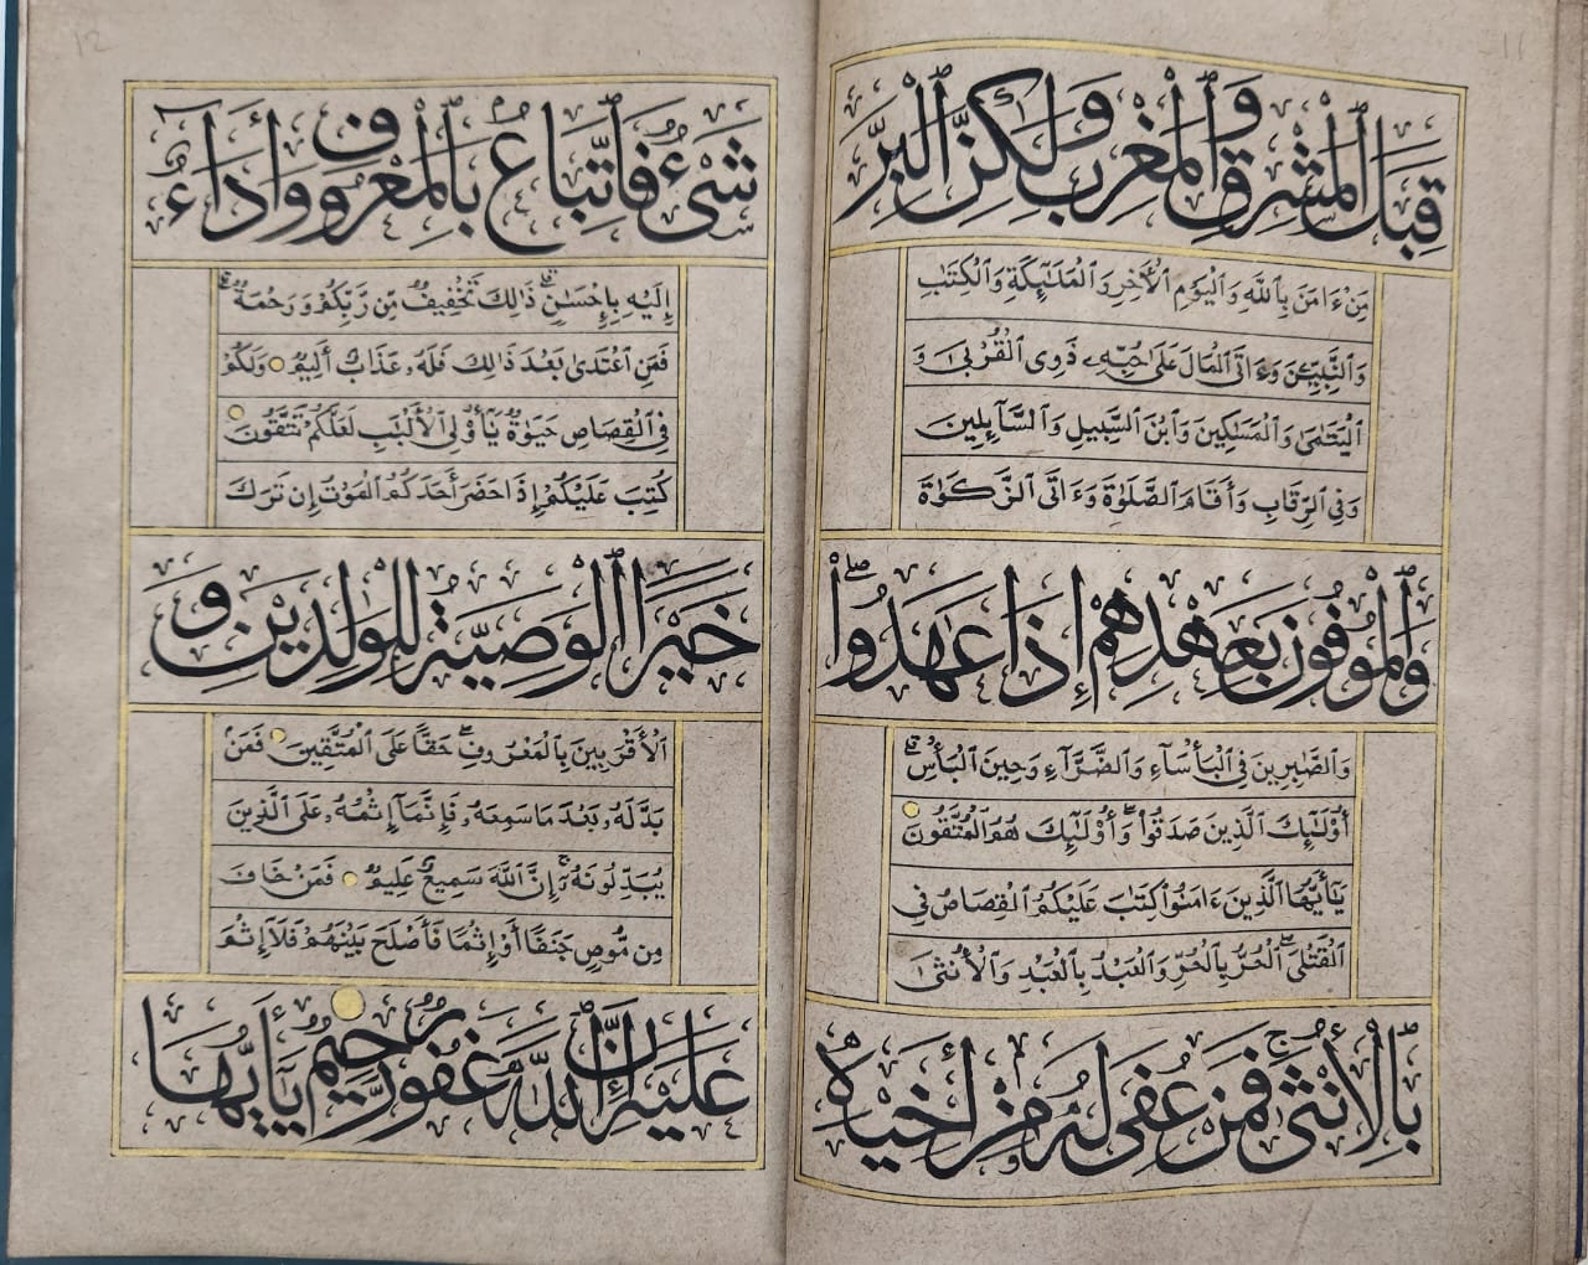 11
قِبَلَ ٱلْمَشْرِقِ وَٱلْمَغْرِبِ وَلَٰكِنَّ ٱلْبِرَّ
مَنْ ءَامَنَ بِٱللَّهِ وَٱلْيَوْمِ ٱلْأَخِرِ وَٱلْمَلَٰٓئِكَةِ وَٱلْكِتَٰبِ
وَٱلنَّبِيِّـۧنَ وَءَاتَى ٱلْمَالَ عَلَىٰ حُبِّهِۦ ذَوِى ٱلْقُرْبَىٰ وَ
ٱلْيَتَٰمَىٰ وَٱلْمَسَٰكِينَ وَٱبْنَ ٱلسَّبِيلِ وَٱلسَّآئِلِينَ
وَفِى ٱلرِّقَابِ وَأَقَامَ ٱلصَّلَوٰةَ وَءَاتَى ٱلزَّكَوٰةَ
وَٱلْمُوفُونَ بِعَهْدِهِمْ إِذَا عَٰهَدُوا۟ ۖ
وَٱلصَّٰبِرِينَ فِى ٱلْبَأْسَآءِ وَٱلضَّرَّآءِ وَحِينَ ٱلْبَأْسِ ۗ
أُو۟لَٰٓئِكَ ٱلَّذِينَ صَدَقُوا۟ ۖ وَأُو۟لَٰٓئِكَ هُمُ ٱلْمُتَّقُونَ
يَٰٓأَيُّهَا ٱلَّذِينَ ءَامَنُوا۟ كُتِبَ عَلَيْكُمُ ٱلْقِصَاصُ فِى
ٱلْقَتْلَى ۖ ٱلْحُرُّ بِٱلْحُرِّ وَٱلْعَبْدُ بِٱلْعَبْدِ وَٱلْأُنثَىٰ
بِٱلْأُنثَىٰ ۚ فَمَنْ عُفِىَ لَهُۥ مِنْ أَخِيهِ
12
شَىْءٌ فَٱتِّبَاعٌۢ بِٱلْمَعْرُوفِ وَأَدَآءٌ
إِلَيْهِ بِإِحْسَٰنٍ ۗ ذَٰلِكَ تَخْفِيفٌ مِّن رَّبِّكُمْ وَرَحْمَةٌ ۗ
فَمَنِ ٱعْتَدَىٰ بَعْدَ ذَٰلِكَ فَلَهُۥ عَذَابٌ أَلِيمٌ وَلَكُمْ
فِى ٱلْقِصَاصِ حَيَوٰةٌ يَٰٓأُو۟لِى ٱلْأَلْبَٰبِ لَعَلَّكُمْ تَتَّقُونَ
كُتِبَ عَلَيْكُمْ إِذَا حَضَرَ أَحَدَكُمُ ٱلْمَوْتُ إِن تَرَكَ
خَيْرًا ٱلْوَصِيَّةُ لِلْوَٰلِدَيْنِ وَ
ٱلْأَقْرَبِينَ بِٱلْمَعْرُوفِ ۖ حَقًّا عَلَى ٱلْمُتَّقِينَ فَمَنْ
بَدَّلَهُۥ بَعْدَ مَا سَمِعَهُۥ فَإِنَّمَآ إِثْمُهُۥ عَلَى ٱلَّذِينَ
يُبَدِّلُونَهُۥٓ ۚ إِنَّ ٱللَّهَ سَمِيعٌ عَلِيمٌ فَمَنْ خَافَ
مِن مُّوصٍ جَنَفًا أَوْ إِثْمًا فَأَصْلَحَ بَيْنَهُمْ فَلَآ إِثْمَ
عَلَيْهِ ۚ إِنَّ ٱللَّهَ غَفُورٌ رَّحِيمٌ يَٰٓأَيُّهَا